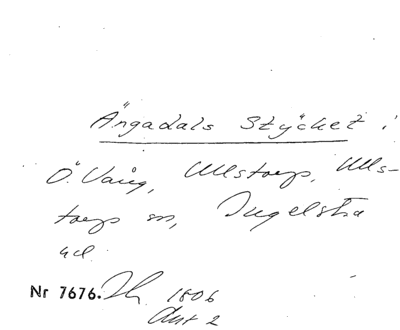 Ängadals Stycket i
Ö. Vång, Ullstorps, Ulls-
torps sn, Ingelstra
hd.
Nr 7676. Th 1806
Akt 2